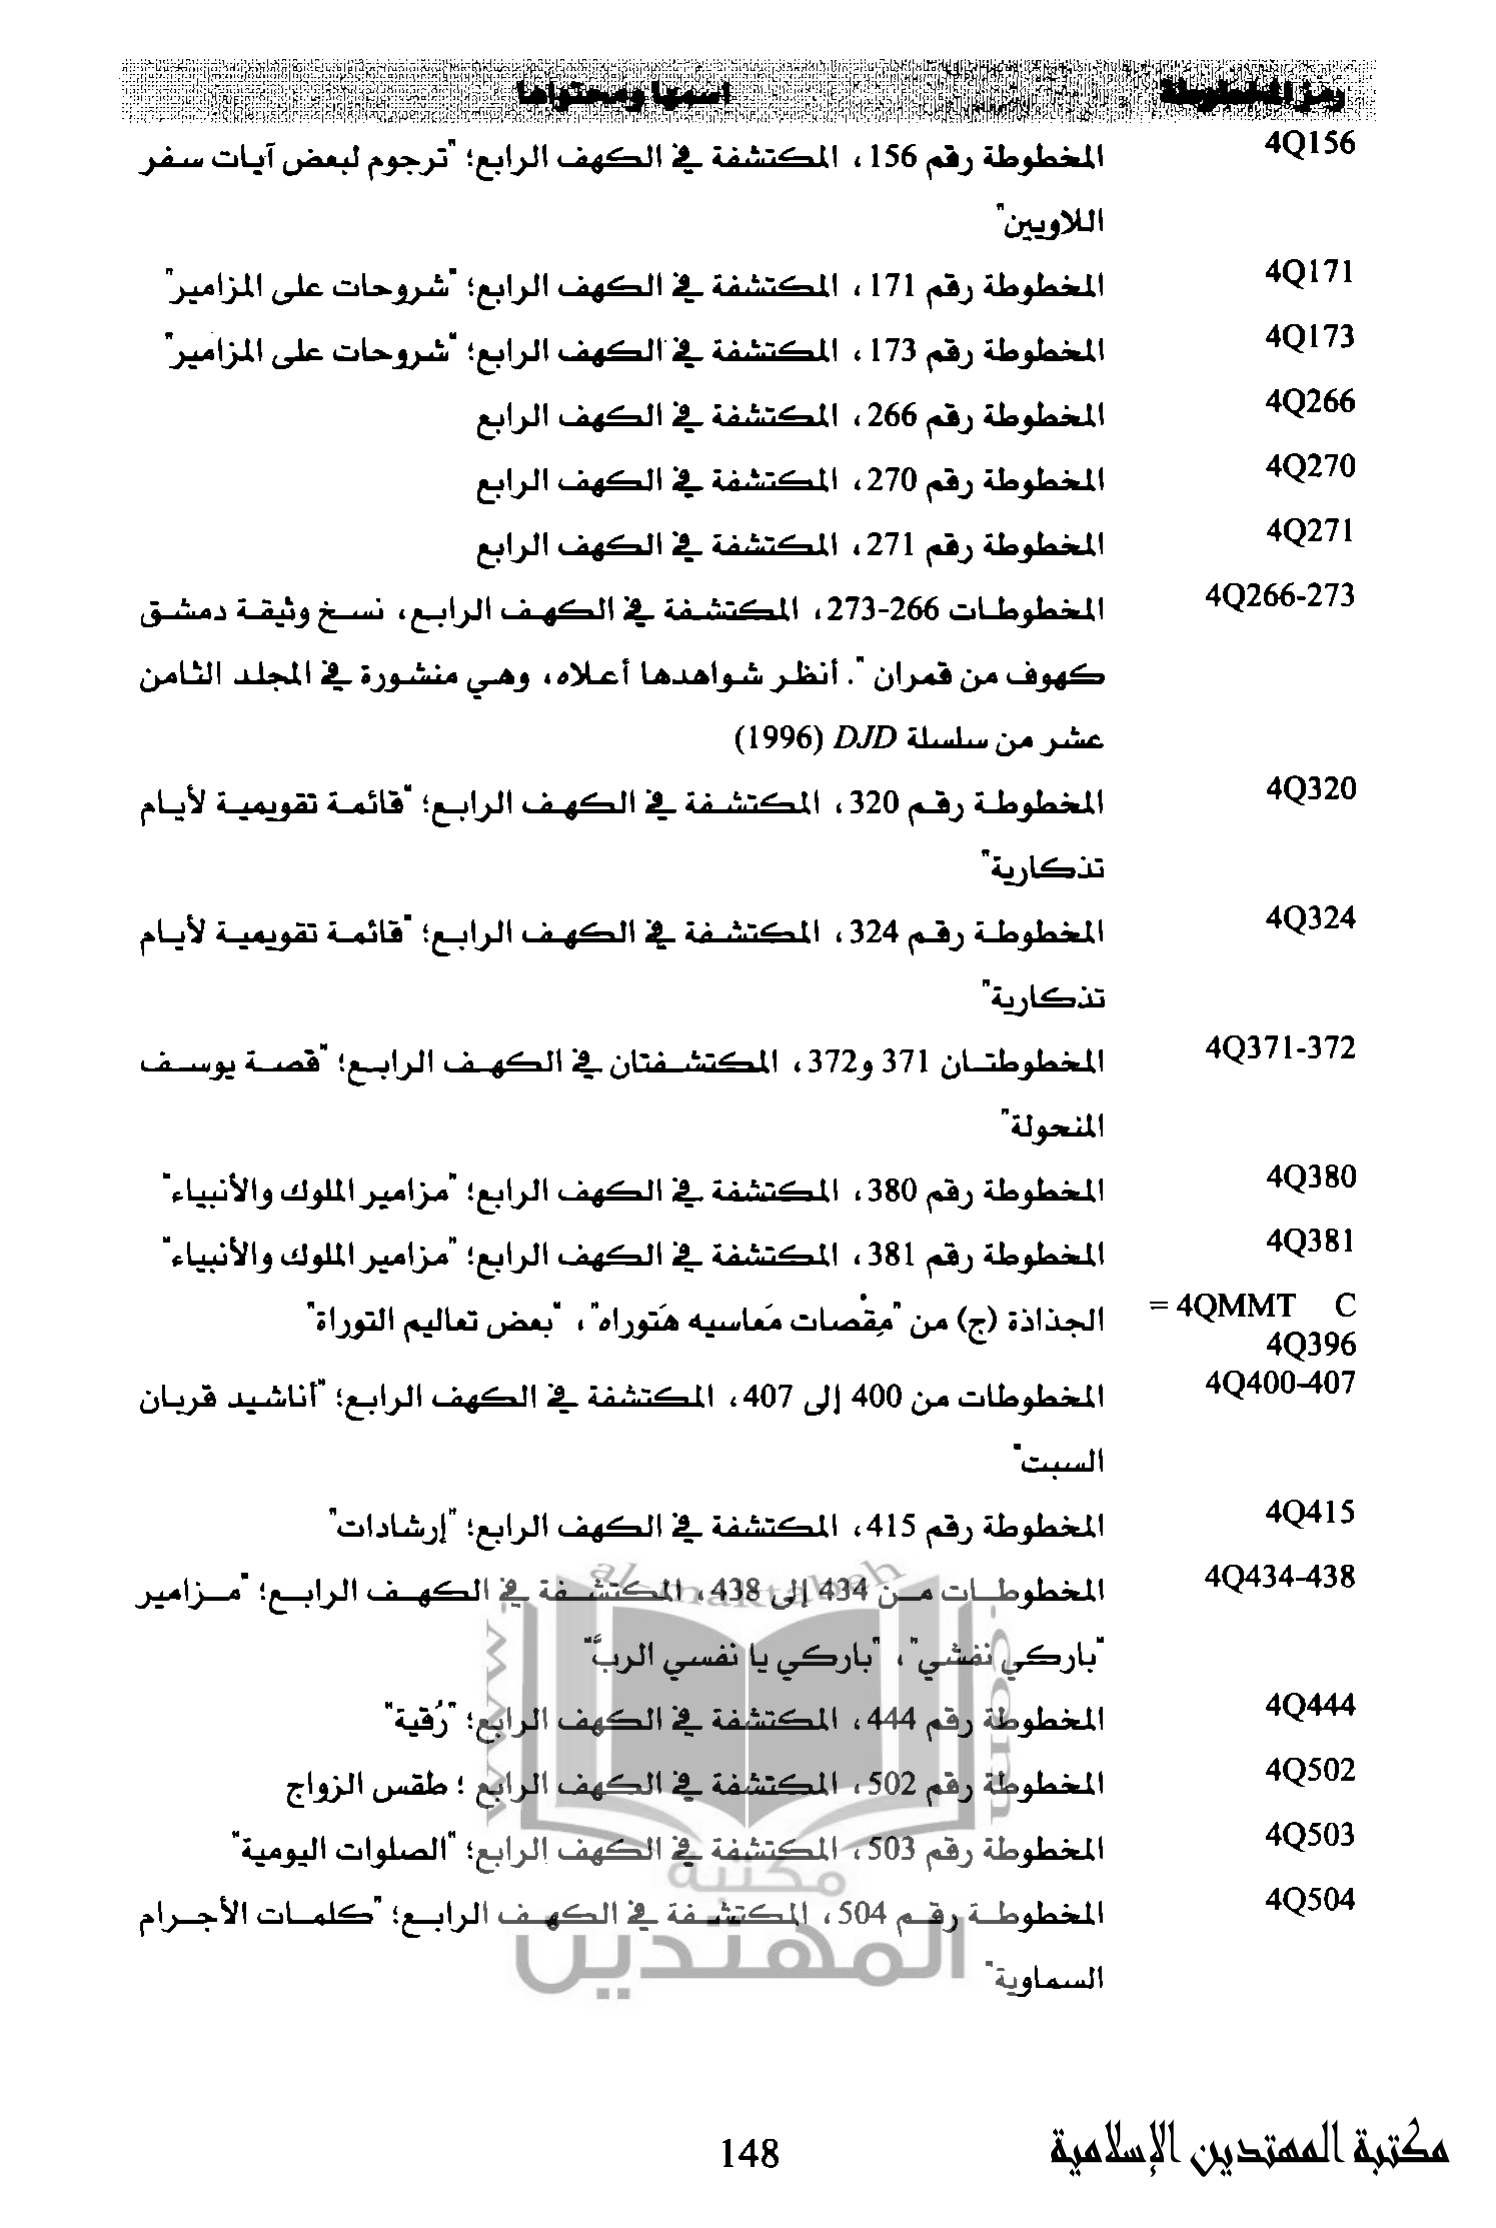 رمز المخطوطة اسمها ومحتواها
4Q156 المخطوطة رقم 156، المكتشفة في الكهف الرابع؛ "ترجوم لبعض آيات سفر
اللاويين"
4Q171 المخطوطة رقم 171، المكتشفة في الكهف الرابع؛ "شروحات على المزامير"
4Q173 المخطوطة رقم 173، المكتشفة في الكهف الرابع؛ "شروحات على المزامير"
4Q266 المخطوطة رقم 266، المكتشفة في الكهف الرابع
4Q270 المخطوطة رقم 270، المكتشفة في الكهف الرابع
4Q271 المخطوطة رقم 271، المكتشفة في الكهف الرابع
4Q266-273 المخطوطات 266-273، المكتشفة في الكهف الرابع، نسخ وثيقة دمشق
كهوف من قمران ". أنظر شواهدها أعلاه، وهي منشورة في المجلد الثامن
عشر من سلسلة DJD (1996)
4Q320 المخطوطة رقم 320، المكتشفة في الكهف الرابع؛ "قائمة تقويمية لأيام
تذكارية"
4Q324 المخطوطة رقم 324، المكتشفة في الكهف الرابع؛ "قائمة تقويمية لأيام
تذكارية"
4Q371-372 المخطوطتان 371 و372، المكتشفتان في الكهف الرابع؛ "قصة يوسف
المنحولة"
4Q380 المخطوطة رقم 380، المكتشفة في الكهف الرابع؛ "مزامير الملوك والأنبياء"
4Q381 المخطوطة رقم 381، المكتشفة في الكهف الرابع؛ "مزامير الملوك والأنبياء"
= 4QMMT C الجذاذة (ج) من "مِقْصات مَعاسيه هَتوراه"، "بعض تعاليم التوراة"
4Q396
4Q400-407 المخطوطات من 400 إلى 407، المكتشفة في الكهف الرابع؛ "أناشيد قربان
السبت"
4Q415 المخطوطة رقم 415، المكتشفة في الكهف الرابع؛ "إرشادات"
4Q434-438 المخطوطات من 434 إلى 438، المكتشفة في الكهف الرابع؛ "مزامير
"باركي نفشي"، "باركي يا نفسي الربَّ"
4Q444 المخطوطة رقم 444، المكتشفة في الكهف الرابع؛ "رُقية"
4Q502 المخطوطة رقم 502، المكتشفة في الكهف الرابع ؛ طقس الزواج
4Q503 المخطوطة رقم 503، المكتشفة في الكهف الرابع؛ "الصلوات اليومية"
4Q504 المخطوطة رقم 504، المكتشفة في الكهف الرابع؛ "كلمات الأجرام
السماوية"
www.al-maktabeh.com
مكتبة
المهتدين
148
مكتبة المهتدين الإسلامية